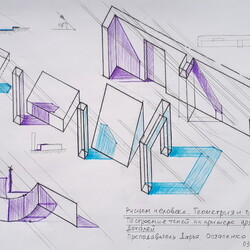 Рисуем человека. Геометрия и
Построение теней на примере ар
деталей
Преподаватель Дарья Остапенко